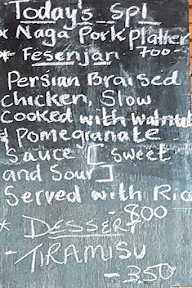 Today's Spl
* Naga Pork platter
700
* Fesenjan
Persian Braised
chicken, Slow
Cooked with Walnut
& Pomegranate
Sauce [Sweet
and Sour]
Served with Ric
- 800
* DESSERT
- TIRAMISU
- 350